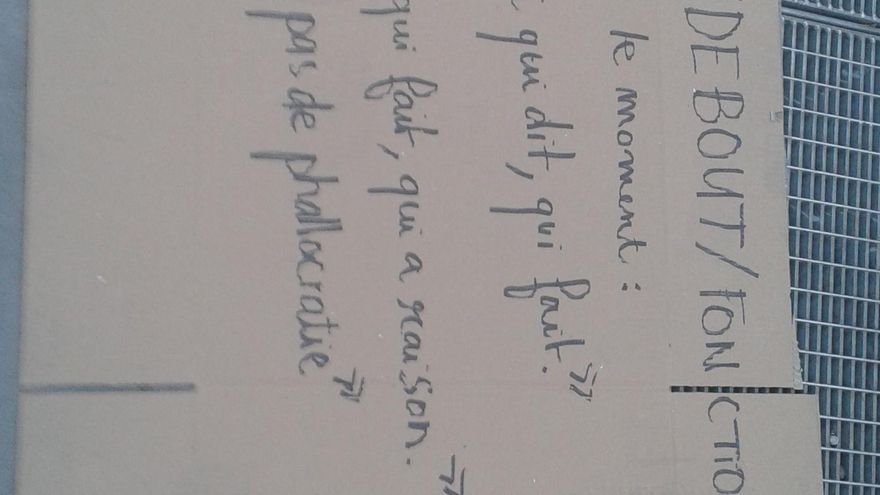 DEBOUT/FONCTIO
le moment :
qui dit, qui fait. »
qui fait, qui a raison. »
pas de phallocratie »